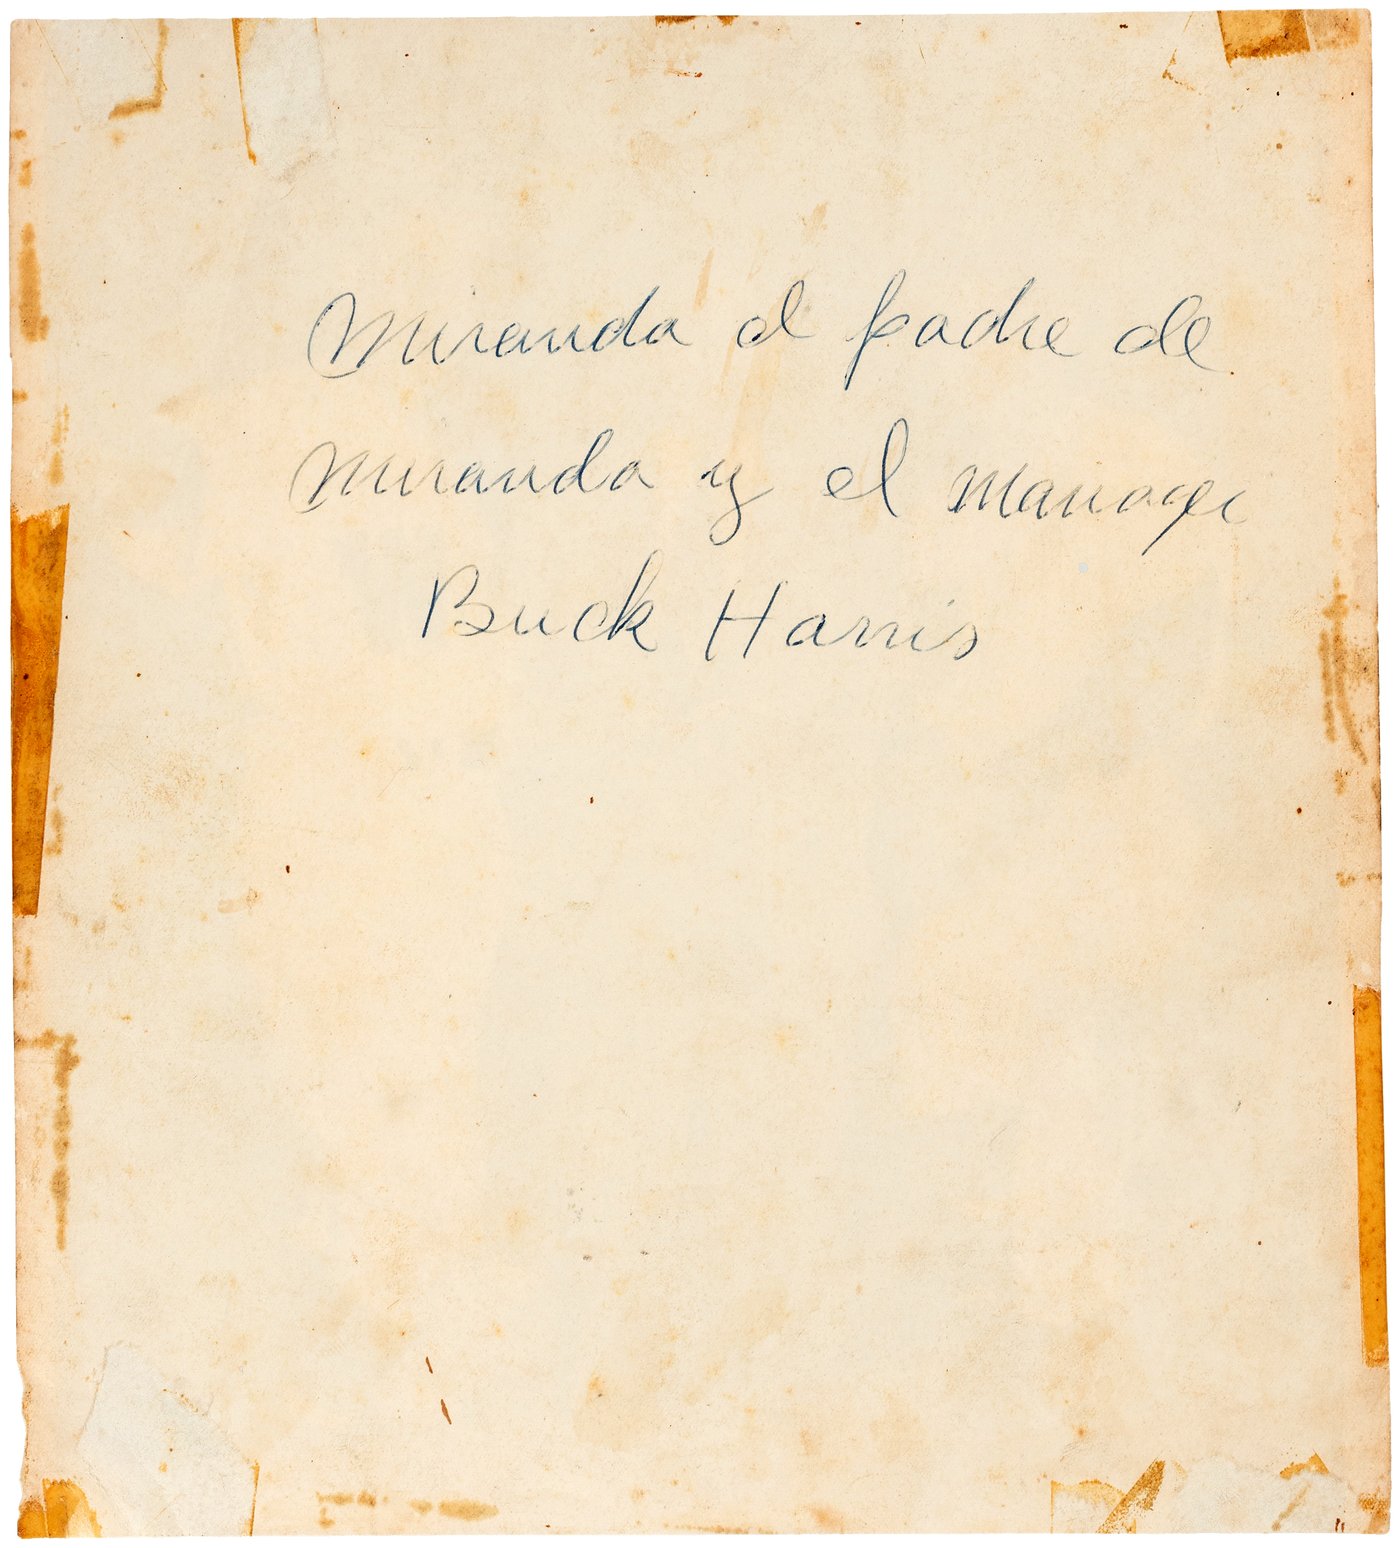 Miranda el padre de
Miranda y el Manager
Buck Harris